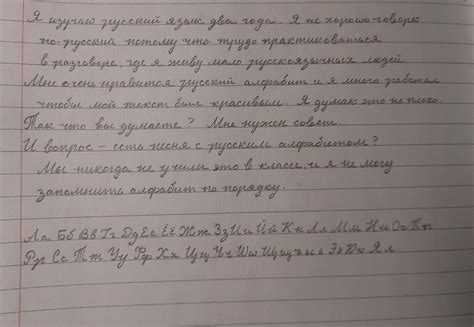 Я изучаю русский язык два года. Я не хорошо говорю
по-русский потому что трудо практиковатися
в разговоре, где я живу мало русскоязычных людей.
Мне очень нравится русский алфабит и я много работал
чтобы мой текст был красивым. Я думаю это не плохо.
Так что вы думаете? Мне нужен совет.
И вопрос – есть песня с русским алфабитом?
Мы никогда не учили это в классе, и я не могу
запомнить алфабит по порядку.
Аа Бб Вв Гг Дд Ее Ёё Жж Зз Ии Йй Кк Лл Мм Нн Оо Пп
Рр Сс Тт Уу Фф Хх Цц Чч Шш Щщ ъ ы ь Ээ Юю Яя